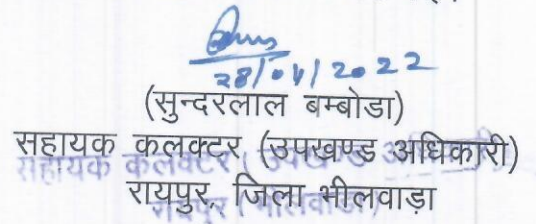 28/04/2022
(सुन्दरलाल बम्बोडा)
सहायक कलक्टर (उपखण्ड अधिकारी)
रायपुर, जिला भीलवाड़ा